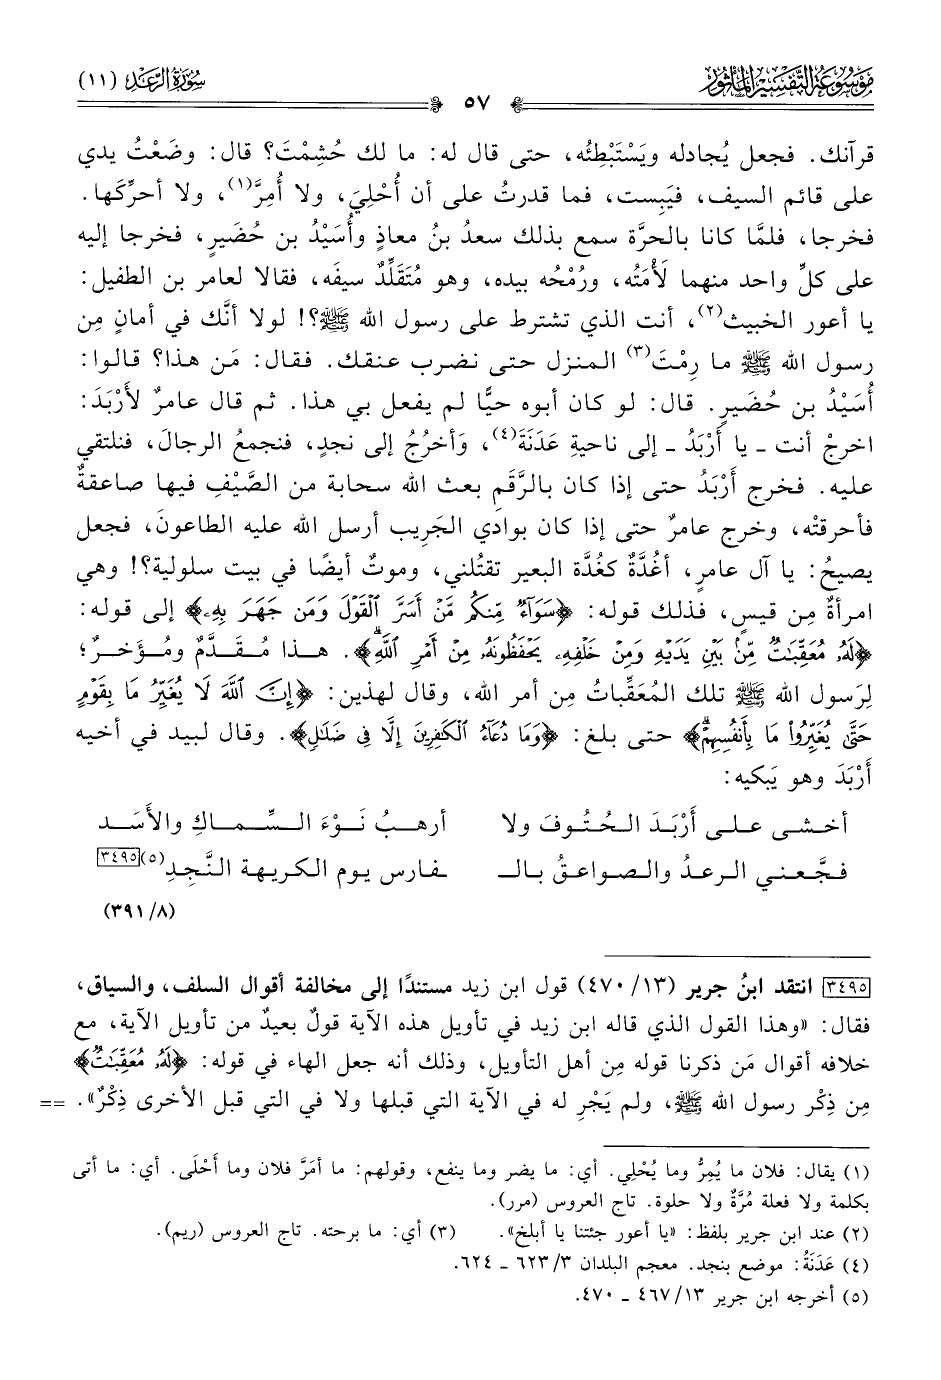 مَوْسُوعَة التَّفْسِيْر المَأْثُور
٥٧
سُورَةُ الرَّعْد (١١)
قرآنك. فجعل يُجادله ويَسْتَبْطِئُه، حتى قال له: ما لك حُشِمْتَ؟ قال: وضَعْتُ يدي
على قائم السيف، فيَبِست، فما قدرتُ على أن أُحْلِيَ، ولا أُمِرَّ(١)، ولا أحرِّكَها.
فخرجا، فلمَّا كانا بالحرَّة سمع بذلك سعدُ بنُ معاذٍ وأُسَيْدُ بن حُضَيرٍ، فخرجا إليه
على كلِّ واحد منهما لَأْمَتُه، ورُمْحُه بيده، وهو مُتَقَلِّدٌ سيفَه، فقالا لعامر بن الطفيل:
يا أعور الخبيث(٢)، أنت الذي تشترط على رسول الله ﷺ؟! لولا أنَّك في أمانٍ مِن
رسول الله ﷺ ما رِمْتَ(٣) المنزل حتى نضرب عنقك. فقال: مَن هذا؟ قالوا:
أُسَيْدُ بن حُضَيرٍ. قال: لو كان أبوه حيًّا لم يفعل بي هذا. ثم قال عامرٌ لأَرْبَدَ:
اخرجْ أنت ـ يا أَرْبَدُ ـ إلى ناحيةِ عَدَنَةَ(٤)، وَأخرُجُ إلى نجدٍ، فنجمعُ الرجالَ، فنلتقي
عليه. فخرج أَرْبَدُ حتى إذا كان بالرَّقَم بعث الله سحابة من الصَّيْفِ فيها صاعقةٌ
فأحرقتْه، وخرج عامرٌ حتى إذا كان بوادي الجَريب أرسل الله عليه الطاعونَ، فجعل
يصيحُ: يا آل عامرٍ، أغُدَّةٌ كغُدَّة البعير تقتُلني، وموتٌ أيضًا في بيت سلولية؟! وهي
امرأةٌ مِن قيسٍ، فذلك قوله: ﴿سَوَآءٌ مِّنكُم مَّنْ أَسَرَّ ٱلْقَوْلَ وَمَن جَهَرَ بِهِۦ﴾ إلى قوله:
﴿لَهُۥ مُعَقِّبَٰتٌ مِّنۢ بَيْنِ يَدَيْهِ وَمِنْ خَلْفِهِۦ يَحْفَظُونَهُۥ مِنْ أَمْرِ ٱللَّهِۗ﴾. هـذا مُـقَـدَّمٌ ومُـؤَخـرٌ؛
لِرَسول الله ﷺ تلك المُعَقِّباتُ مِن أمر الله، وقال لهذين: ﴿إِنَّ ٱللَّهَ لَا يُغَيِّرُ مَا بِقَوْمٍ
حَتَّىٰ يُغَيِّرُواْ مَا بِأَنفُسِهِمْۗ﴾ حتى بلغ: ﴿وَمَا دُعَآءُ ٱلْكَٰفِرِينَ إِلَّا فِى ضَلَٰلٍ﴾. وقال لبيد في أخيه
أَرْبَدَ وهو يَبكيه:
أخـشـى عـلـى أَرْبَـدَ الـحُـتُـوفَ ولا أرهـبُ نَـوْءَ الـسِّـمـاكِ والأَسَـد
فـجَّـعـنـي الـرعـدُ والـصـواعـقُ بـالـ ـفـارس يـوم الـكـريـهـة الـنَّـجِـدِ(٥)[٣٤٩٥]
(٣٩١/٨)
[٣٤٩٥] انتقد ابنُ جرير (٤٧٠/١٣) قول ابن زيد مستندًا إلى مخالفة أقوال السلف، والسياق،
فقال: «وهذا القول الذي قاله ابن زيد في تأويل هذه الآية قولٌ بعيدٌ من تأويل الآية، مع
خلافه أقوال مَن ذكرنا قوله مِن أهل التأويل، وذلك أنه جعل الهاء في قوله: ﴿لَهُۥ مُعَقِّبَٰتٌ﴾
مِن ذِكْر رسول الله ﷺ، ولم يَجْرِ له في الآية التي قبلها ولا في التي قبل الأخرى ذِكْرٌ». ==
(١) يقال: فلان ما يُمِرُّ وما يُحْلِي. أي: ما يضر وما ينفع، وقولهم: ما أمَرَّ فلان وما أَحْلَى. أي: ما أتى
بكلمة ولا فعلة مُرَّةٌ ولا حلوة. تاج العروس (مرر).
(٢) عند ابن جرير بلفظ: «يا أعور جئتنا يا أبلخ». (٣) أي: ما برحته. تاج العروس (ريم).
(٤) عَدَنَةُ: موضع بنجد. معجم البلدان ٦٢٣/٣ ـ ٦٢٤.
(٥) أخرجه ابن جرير ٤٦٧/١٣ ـ ٤٧٠.